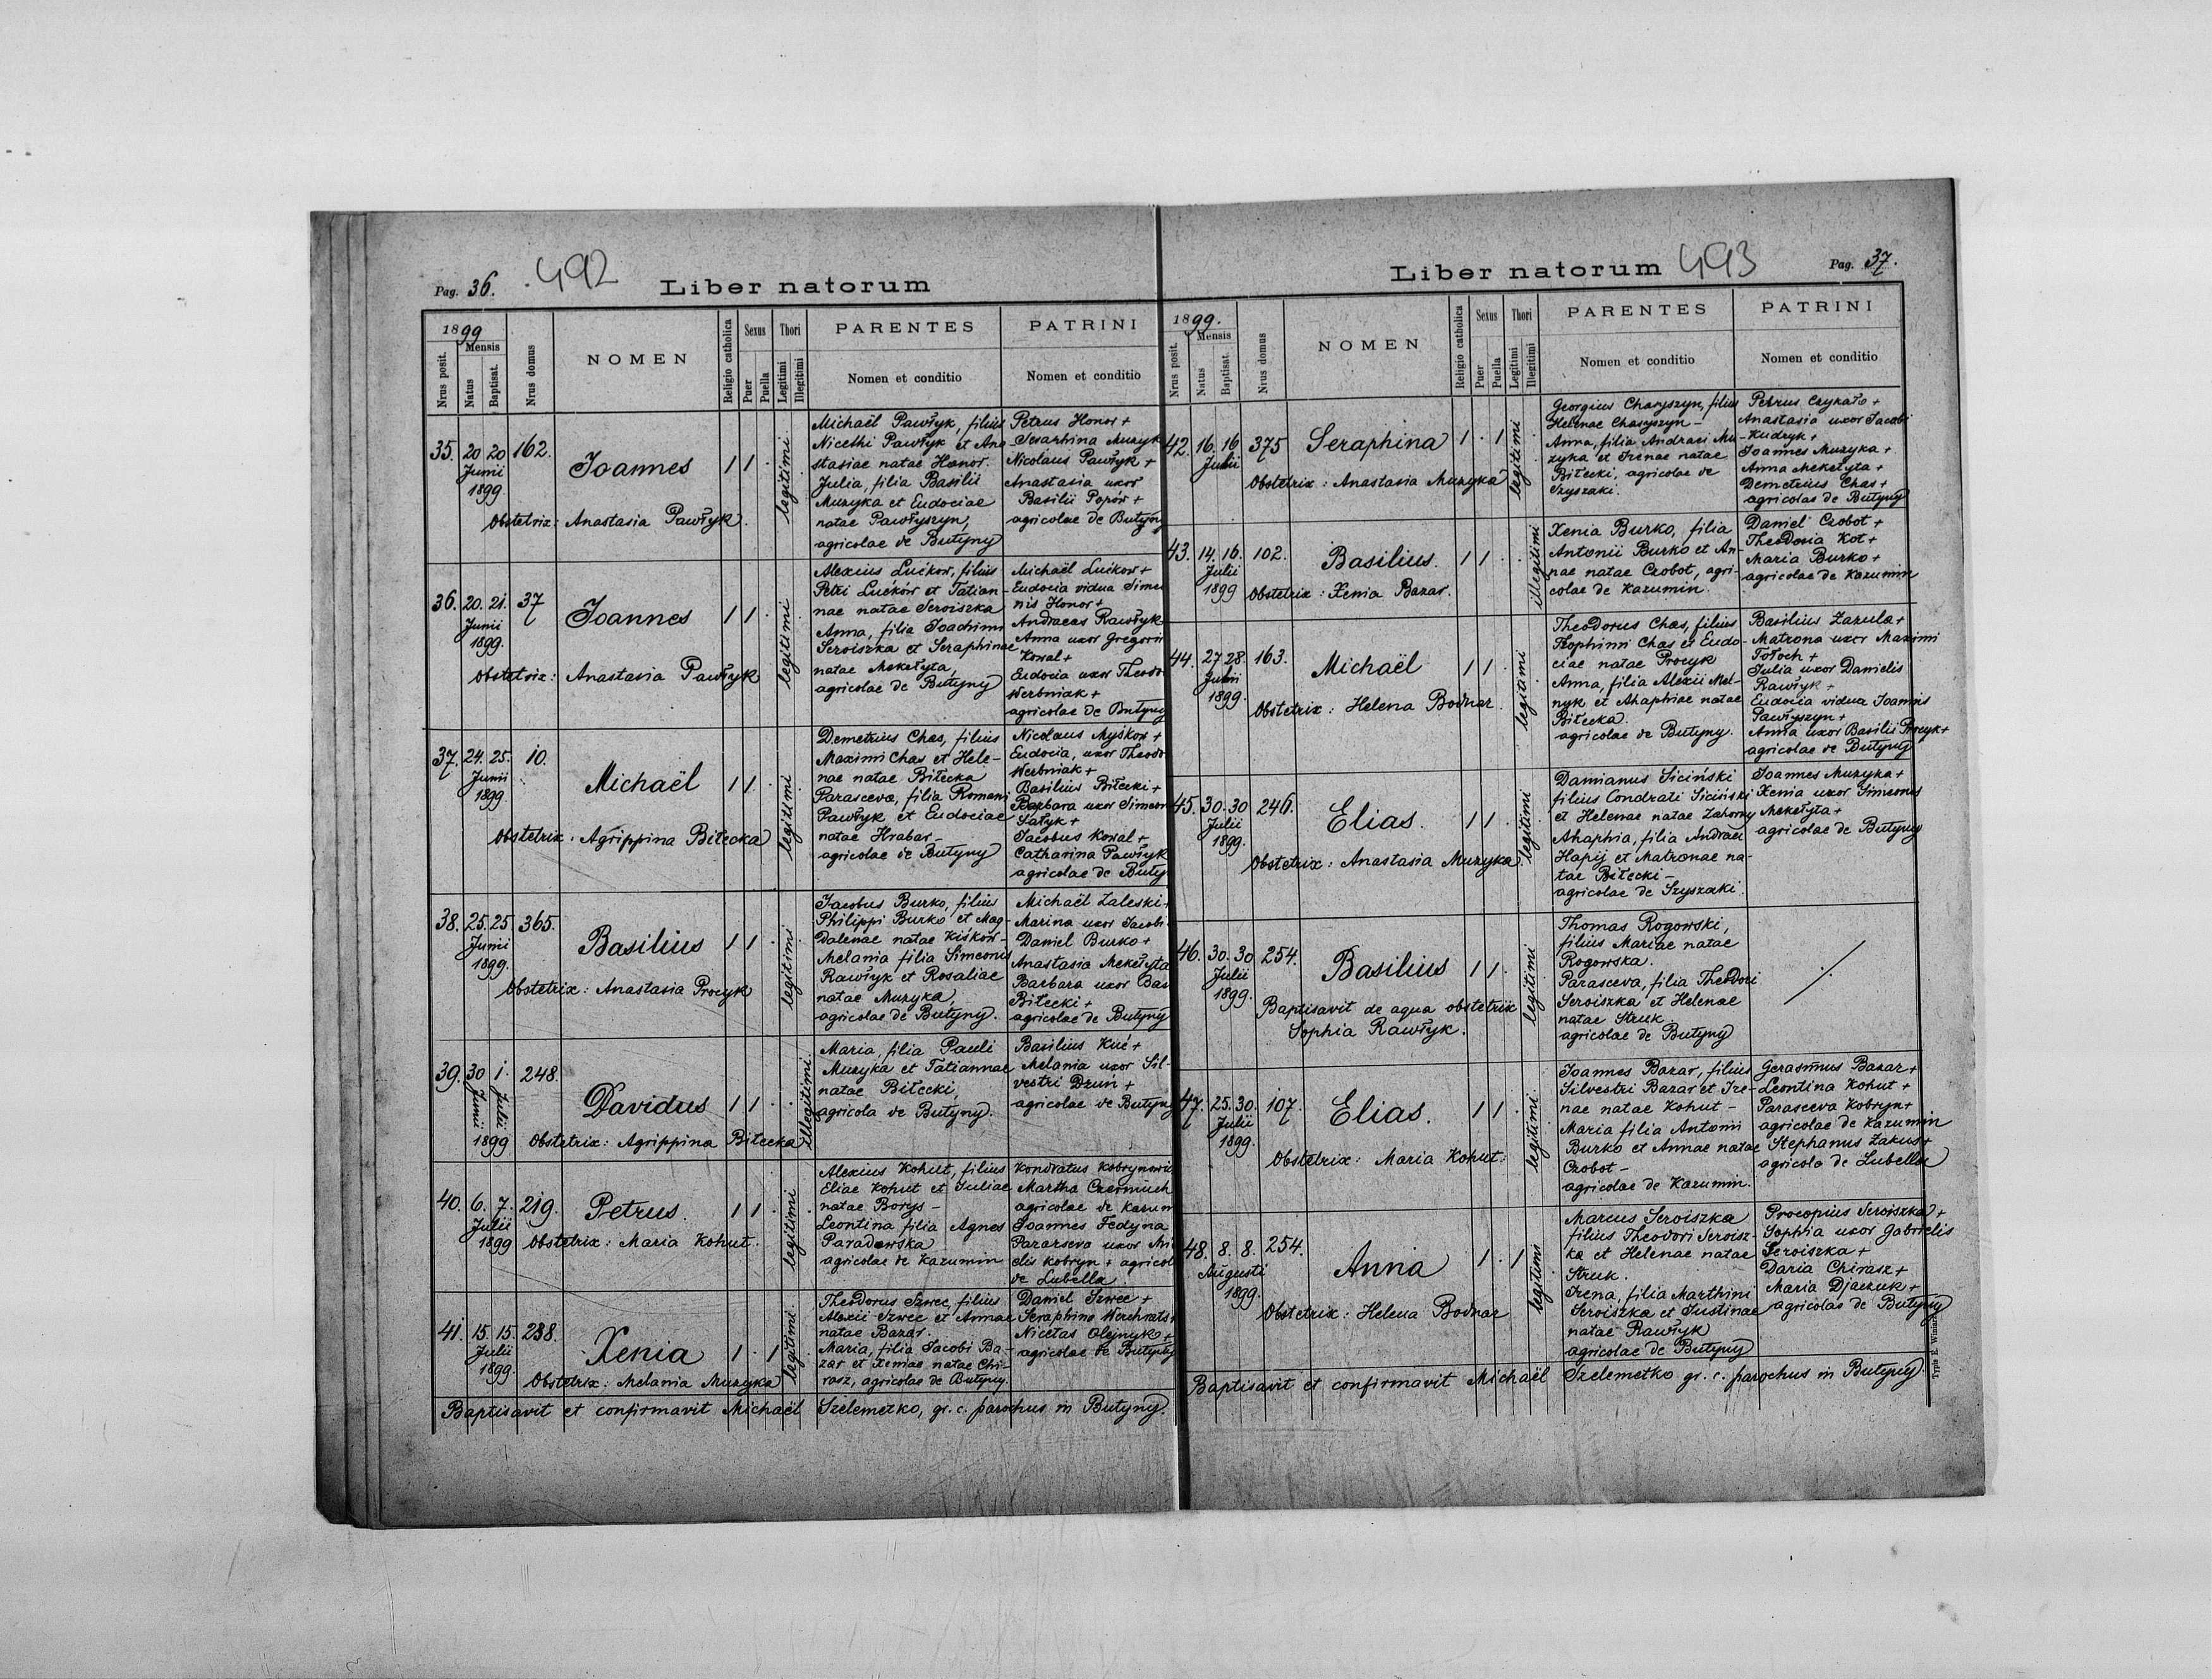 Pag. 36. 492 Liber natorum
1899
Mensis
Nrus posit. Natus Baptisat. Nrus domus NOMEN Religio catholica Sexus Puer Puella Thori Legitimi Illegitimi PARENTES Nomen et conditio PATRINI Nomen et conditio
35. 20 20 162. Joannes 1 1 . legitimi
Junii
1899.
Obstetrix: Anastasia Pawłyk.
Michaël Pawłyk, filius
Nicethi Pawłyk et Ana-
stasiae natae Honor.
Julia, filia Basilii
Muzyka et Eudociae
natae Pawłyszyn,
agricolae de Butyny
Petrus Honor +
Seraphina Muzyk
Nicolaus Pawłyk +
Anastasia uxor
Basilii Popów +
agricolae de Butyny
36. 20. 21. 37 Joannes 1 1 . legitimi
Junii
1899.
Obstetrix: Anastasia Pawłyk
Alexius Lućkow, filius
Petri Lućków et Tatian-
nae natae Seroiszka
Anna, filia Joachimi
Seroiszka et Seraphinae
natae Mekełyta
agricolae de Butyny
Michaël Lućkow +
Eudocia vidua Simeo
nis Honor +
Andraeas Rawłyk
Anna uxor Gregorii
Kowal +
Eudocia uxor Theodo
Werbniak +
agricolae de Butyny
37. 24. 25. 10. Michaël 1 1 . legitimi
Junii
1899.
Obstetrix: Agrippina Biłecka
Demetrius Chas, filius
Maximi Chas et Hele-
nae natae Biłecka
Parasceva, filia Romani
Pawłyk et Eudociae
natae Hrabar-
agricolae de Butyny
Nicolaus Myśkow +
Eudocia, uxor Theodo
Werbniak +
Basilius Biłecki +
Barbara uxor Simeon
Sałyk +
Jacobus Kowal +
Catharina Pawłyk
agricolae de Buty
38. 25. 25 365. Basilius 1 1 . legitimi
Junii
1899.
Obstetrix: Anastasia Procyk
Jacobus Burko, filius
Philippi Burko et Mag-
dalenae natae Kiśków-
Melania filia Simeonis
Rawłyk et Rosaliae
natae Muzyka,
agricolae de Butyny.
Michaël Zaleski +
Marina uxor Jacobi
Daniel Burko +
Anastasia Mekełyta
Barbara uxor Bas
Biłecki +
agricolae de Butyny
39. 30 1. 248. Davidus 1 1 . illegitimi
Junii Julii
1899 Obstetrix: Agrippina Biłecka
Maria, filia Pauli
Muzyka et Tatiannae
natae Biłecki,
agricola de Butyny.
Basilius Kuć +
Melania uxor Sil-
vestri Dzuń +
agricolae de Butyny
40. 6. 7. 219. Petrus. 1 1 . legitimi
Julii
1899 Obstetrix: Maria Kohut.
Alexius Kohut, filius
Eliae Kohut et Juliae
natae Borys-
Leontina filia Agnes
Paradowska
agricolae de Kazumin
Kondratus Kobrynowi
Martha Czerniuch
agricolae de Kazum
Joannes Fedyna
Pararseva uxor Mi
elis Kobryn + agricol
de Lubella
41. 15. 15. 238. Xenia 1 . 1 legitimi
Julii
1899.
Obstetrix: Melania Muzyka
Theodorus Szwec, filius
Alexii Szwec et Annae
natae Bazar.
Maria, filia Jacobi Ba-
zar et Xeniae natae Chi-
rasz, agricolae de Butyny.
Daniel Szwec +
Seraphina Werchrats +
Nicetas Olejnyk +
agricolae de Butyny
Baptisavit et confirmavit Michaël Szelemetko, gr. c. parochus in Butyny.
Liber natorum 493 Pag. 37.
1899.
Mensis
Nrus posit. Natus Baptisat. Nrus domus NOMEN Religio catholica Sexus Puer Puella Thori Legitimi Illegitimi PARENTES Nomen et conditio PATRINI Nomen et conditio
42. 16. 16 375 Seraphina 1 . 1 legitimi
Julii
Obstetrix: Anastasia Muzyka
Georgius Charyszyn, filius
Helenae Charyszyn-
Anna, filia Andraei Mu-
zyka et Irenae natae
Biłecki, agricolae de
Szyszaki.
Petrus Czykało +
Anastasia uxor Jacobi
Kudryk +
Joannes Muzyka +
Anna Mekełyta +
Demetrius Chas +
agricolae de Butyny
43. 14. 16. 102. Basilius. 1 1 . illegitimi
Julii
1899 Obstetrix: Xenia Bazar.
Xenia Burko, filia
Antonii Burko et An-
nae natae Czobot, agri-
colae de Kazumin
Daniel Czobot +
Theodosia Kot +
Maria Burko +
agricolae de Kazumin
44. 27 28. 163. Michaël 1 1 . legitimi
Julii
1899.
Obstetrix: Helena Bodnar.
Theodorus Chas, filius
Trophimi Chas et Eudo-
ciae natae Procyk
Anna, filia Alexii Mel-
nyk et Ahaphiae natae
Biłecka.
agricolae de Butyny.
Basilius Zazula +
Matrona uxor Maximi
Tołoch +
Julia uxor Danielis
Rawłyk +
Eudocia vidua Joannis
Pawłyszyn +
Anna uxor Basilii Procyk +
agricolae de Butyny
45. 30. 30 246. Elias. 1 1 . legitimi
Julii
1899.
Obstetrix: Anastasia Muzyka.
Damianus Siciński
filius Condrati Siciński
et Helenae natae Zahorny
Ahaphia, filia Andraei
Hapij et Matronae na-
tae Biłecki-
agricolae de Szyszaki.
Joannes Muzyka +
Xenia uxor Simeonis
Mekełyta +
agricolae de Butyny
46. 30. 30 254. Basilius 1 1 . legitimi
Julii
1899.
Baptisavit de aqua obstetrix
Sophia Rawłyk.
Thomas Rogowski,
filius Mariae natae
Rogowska.
Parasceva, filia Theodori
Seroiszka et Helenae
natae Struk.
agricolae de Butyny
47. 25. 30. 107. Elias. 1 1 . legitimi
Julii
1899.
Obstetrix: Maria Kohut.
Joannes Bazar, filius
Silvestri Bazar et Ire-
nae natae Kohut-
Maria filia Antonii
Burko et Annae natae
Czobot-
agricolae de Kazumin.
Gerasimus Bazar +
Leontina Kohut +
Parasceva Kobryn +
agricolae de Kazumin
Stephanus Zakus +
agricola de Lubella
48. 8. 8. 254. Anna 1 . 1 legitimi
Augusti
1899.
Obstetrix: Helena Bodnar
Marcus Seroiszka
filius Theodori Seroisz-
ka et Helenae natae
Struk.
Irena, filia Marthini
Seroiszka et Justinae
natae Rawłyk
agricolae de Butyny
Procopius Seroiszka +
Sophia uxor Gabrielis
Seroiszka +
Daria Chirasz +
Maria Djaczuk +
agricolae de Butyny
Baptisavit et confirmavit Michaël Szelemetko gr. c. parochus in Butyny.